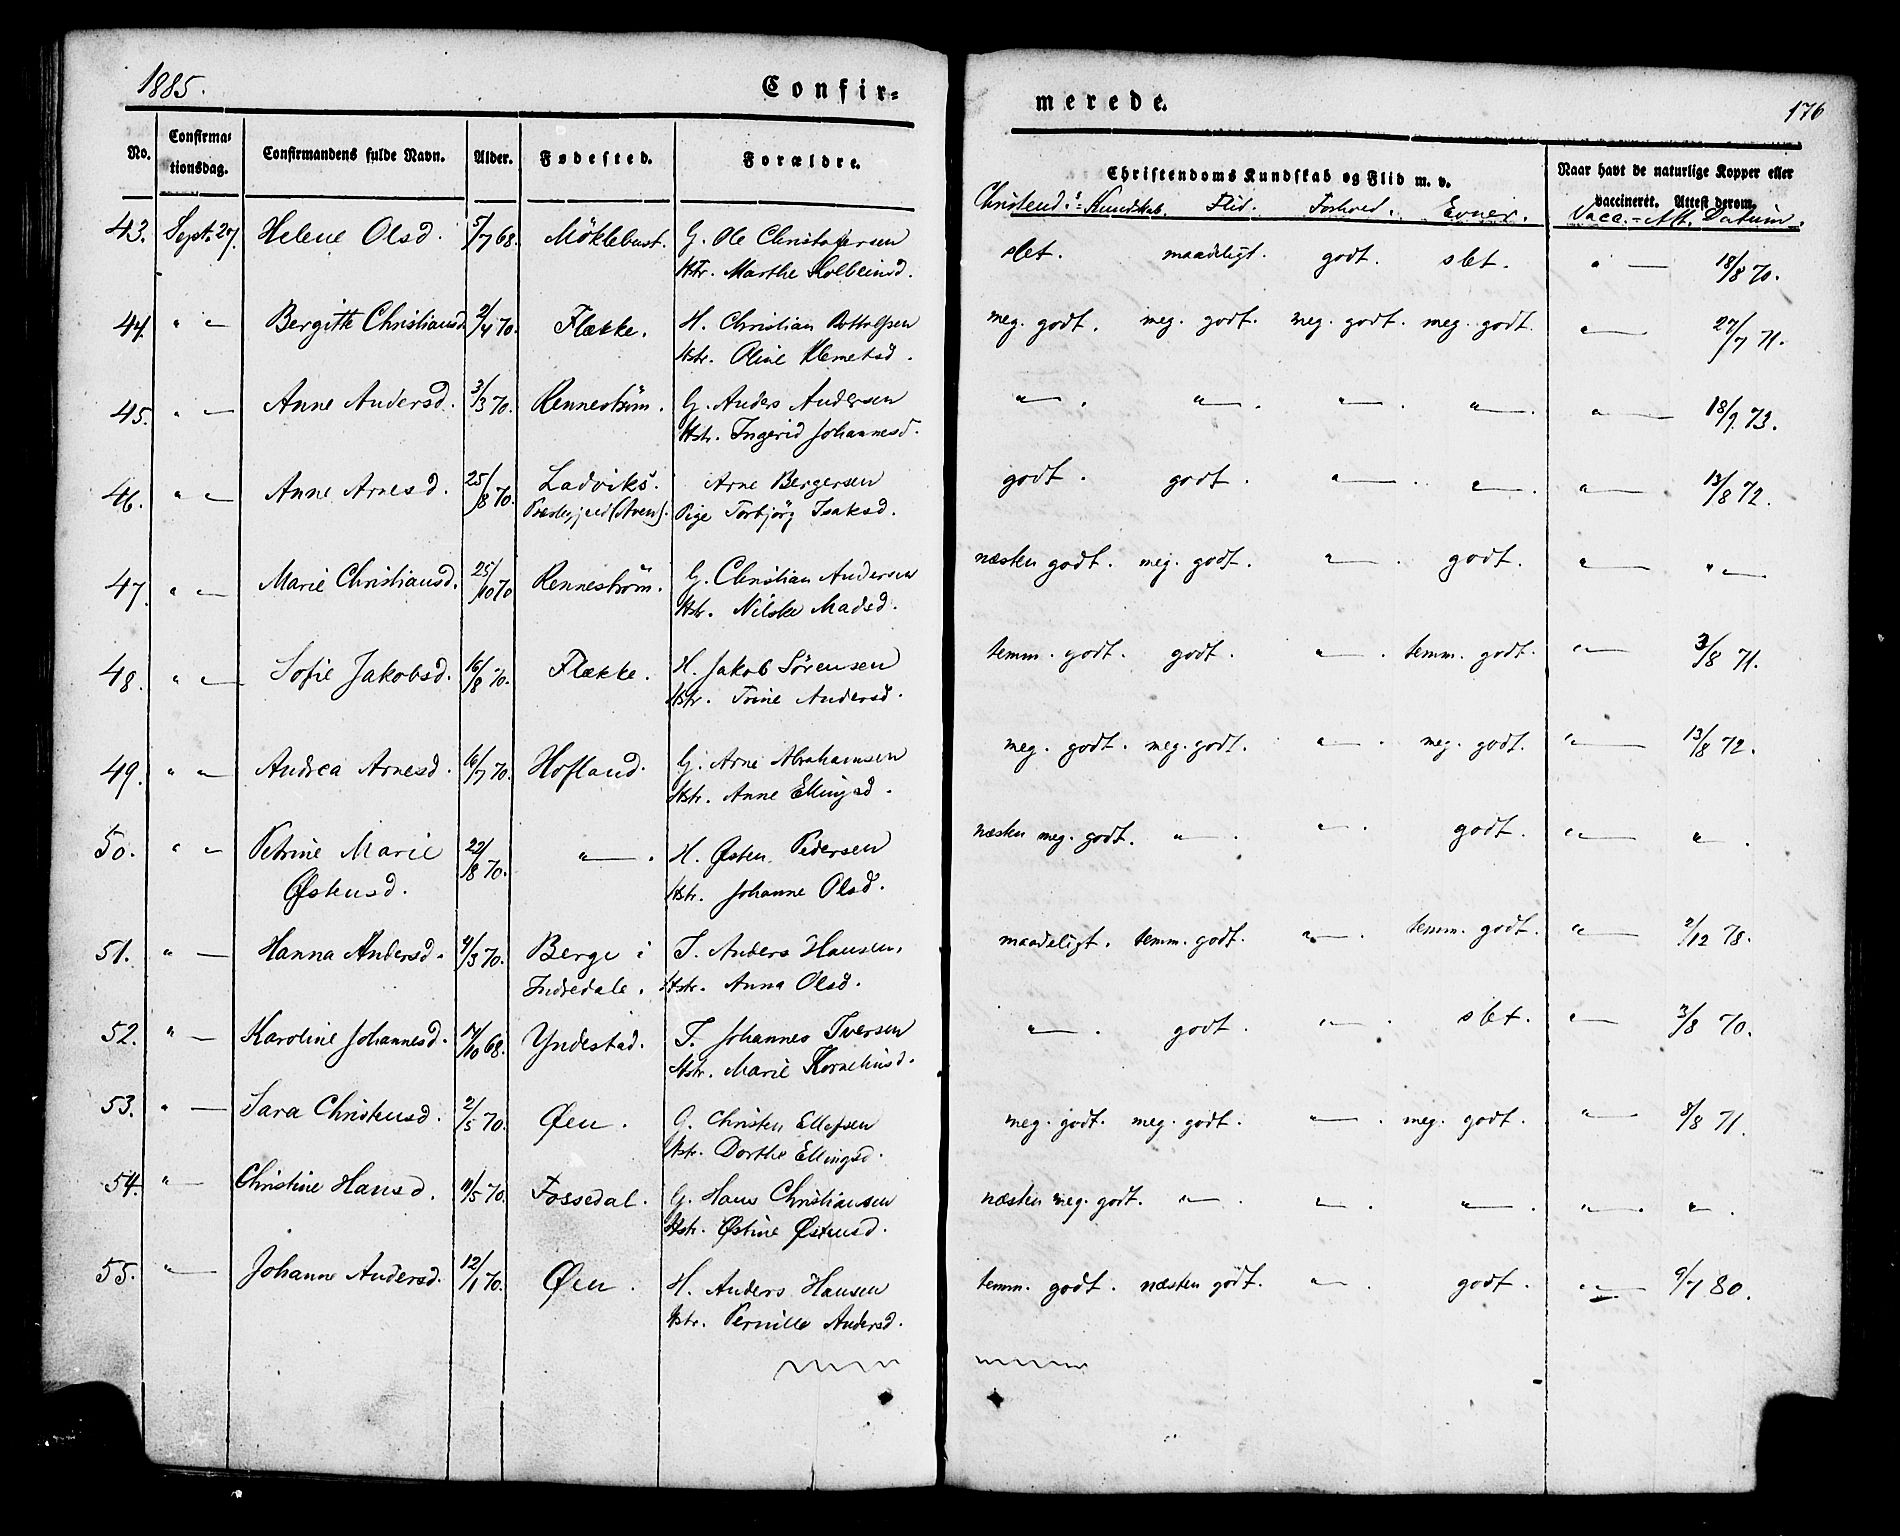 1885.
Confir=
merede.
176
No.
Confirma=
tionsdag.
Confirmandens fulde Navn.
Alder.
Fødested.
Forældre.
Christendoms Kundskab og Flid m. v.
Naar havt de naturlige Kopper eller
vaccineret. Attest derom.
Christend:s=Kundskab. Flid. Forhold. Evner. Vacc.-Att. Datum.
43. Sept. 27. Helene Olsd. 5/7 68. Möklebust. G. Ole Christofersen slet. maadeligt. godt. slet. " — 18/8 70.
Hstr. Marthe Kolbeinsd.
44. " — Bergitte Christiansd. 2/4 70. Flække. H. Christian Bottolfsen meg. godt. meg. godt. meg. godt. meg. godt. " — 27/7 71.
Hstr. Oline Klemetsd.
45. " — Anne Andersd. 3/3 70. Renneström. G. Anders Andersen " — . " — . " — . " — . " — 18/9 73.
Hstr. Ingerid Johannesd.
46. " — Anne Arnesd. 25/8 70. Ladviks. Arne Bergersen godt. godt. " — . " — . " — 13/8 72.
Præstegjæld (Aven). Pige Torbjörg Isaksd.
47. " — Marie Christiansd. 25/10 70 Renneström. G. Christian Andersen næsten godt. meg. godt. " — . godt. " — " —
Hstr. Nilske Madsd.
48. " — Sofie Jakobsd. 16/8 70. Flække. H. Jakob Sörensen temm. godt. godt. " — . temm. godt. " — 3/8 71.
Hstr. Trine Andersd.
49. " — Andrea Arnesd. 16/7 70. Hofland. G. Arne Abrahamsen meg. godt. meg. godt. " — . meg. godt. " — 13/8 72.
Hstr. Anne Ellingsd.
50. " — Petrine Marie 22/8 70. " — . H. Østen Pedersen næsten meg. godt. " — . " — . godt. " — " .
Østensd. Hstr. Johanne Olsd.
51. " — Hanna Andersd. 4/3 70. Berge i I. Anders Hansen, maadeligt. temm. godt. " — . temm. godt. " — 2/12 78.
Indredale. Hstr. Anna Olsd.
52. " — Karoline Johannesd. 17/10 68. Yndestad. I. Johannes Iversen " — . godt. " — . slet. " — 3/8 70.
Hstr. Marie Korneliusd.
53. " — Sara Christensd. 2/5 70. Øen. G. Christen Ellefsen meg. godt. meg. godt. " — . meg. godt. " — 8/8 71.
Hstr. Dorthe Ellingsd.
54. " — Christine Hansd. 11/5 70. Fossedal. G. Hans Christiansen næsten meg. godt. " — . " — . " — . " — . " — .
Hstr. Østine Østensd.
55. " — Johanne Andersd. 12/1 70. Øen. H. Anders Hansen temm. godt. næsten godt. " — . godt. " — 9/7 80.
Hstr. Pernille Andersd.